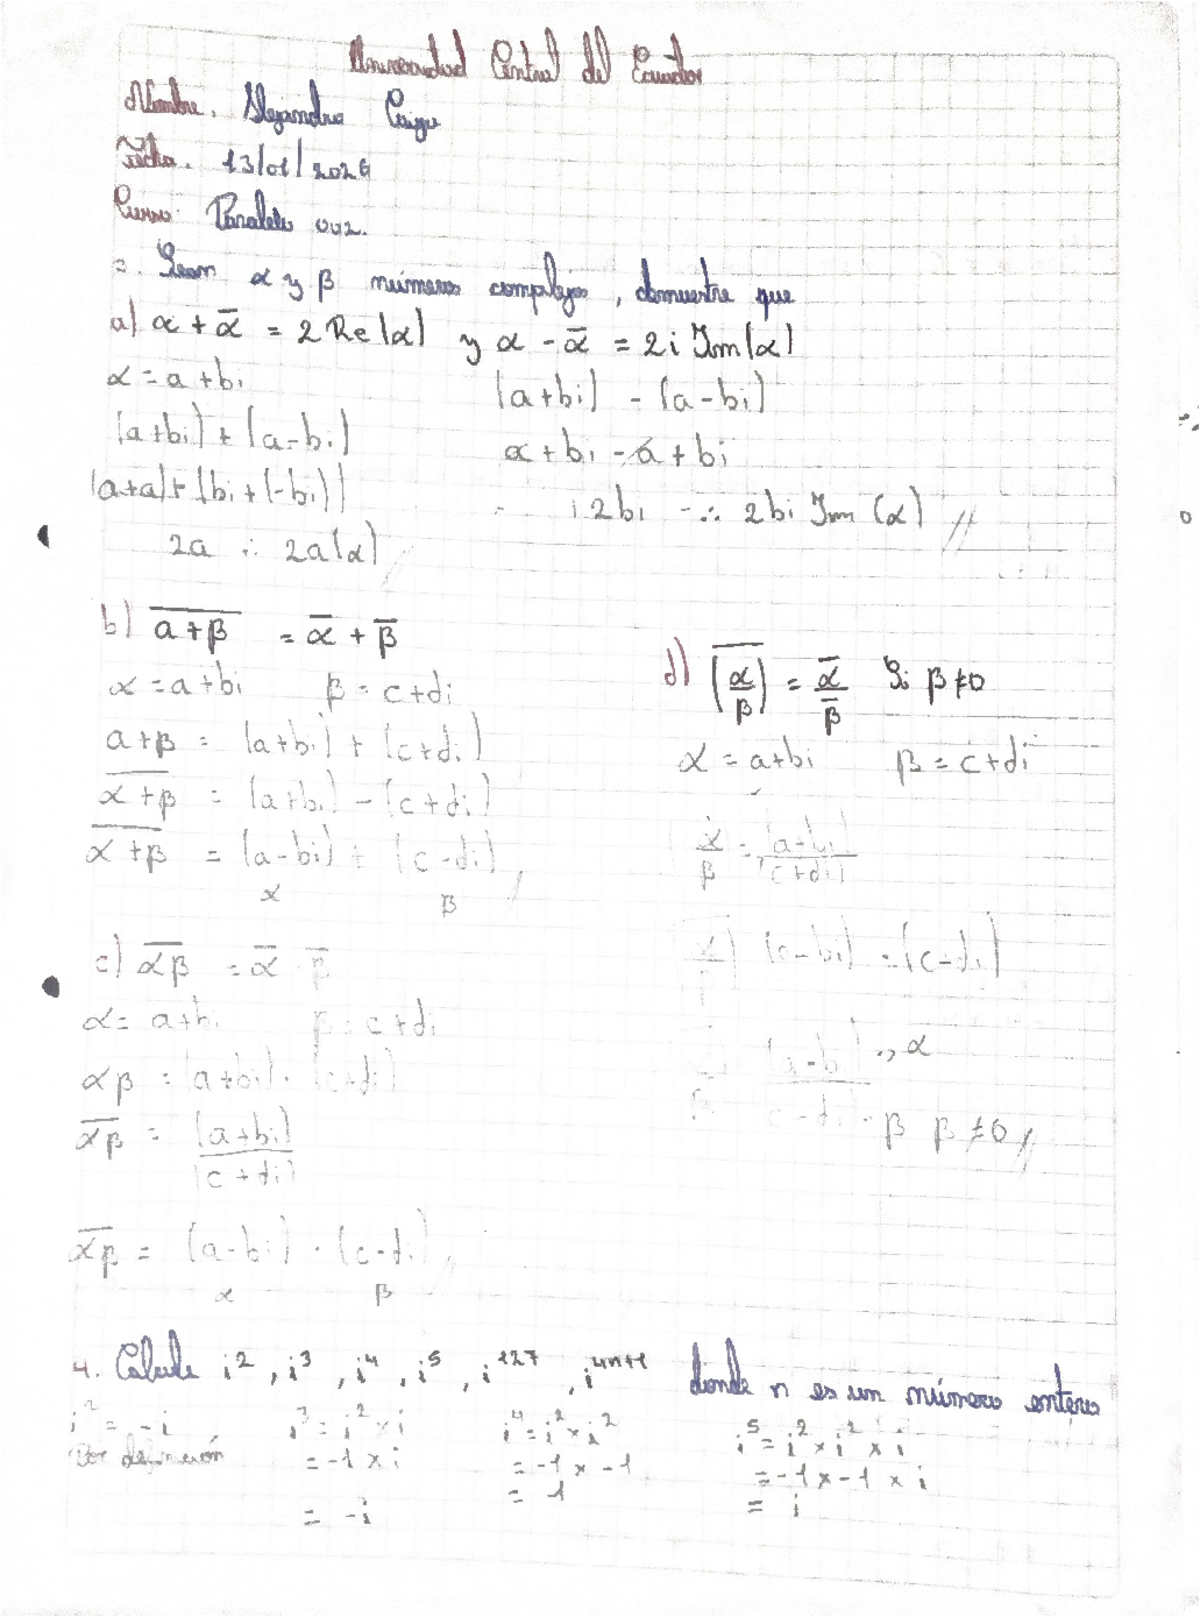 Universidad Central del Ecuador
Nombre. Alejandro
Fecha. 13/01/2026
Curso: Paralelo 002.
Sean α y β números complejos, demuestre que
a) α + ᾱ = 2 Re(α) y α - ᾱ = 2i Im(α)
α = a + bi
(a+bi) + (a-bi)
(a+a) + (bi + (-bi))
2a ∴ 2a(α)
(a+bi) - (a-bi)
a + bi - a + bi
2bi ∴ 2bi Im (α) //
b) \overline{a+β} = ᾱ + β̄
α = a+bi β = c+di
a+β = (a+bi) + (c+di)
\overline{α+β} = (a+bi) - (c+di)
\overline{α+β} = (a-bi) + (c-di)
α β
c) \overline{αβ} = ᾱ · β̄
α = a+bi β = c+di
αβ = (a+bi) · (c+di)
\overline{αβ} = (a+bi)/(c+di)
\overline{αβ} = (a-bi) · (c-di)
α β
d) \overline{(α/β)} = ᾱ/β̄ Si β ≠ 0
α = a+bi β = c+di
α/β = (a+bi)/(c+di)
= (c-di)
(a-bi) α
(c-di) β β ≠ 0 //
4. Calcule i², i³, i⁴, i⁵, i¹²⁷, i⁴ⁿ⁺¹ donde n es un número entero
i² = -i
Por definición
i³ = i² × i
= -1 × i
= -i
i⁴ = i² × i²
= -1 × -1
= 1
i⁵ = i² × i² × i
= -1 × -1 × i
= i